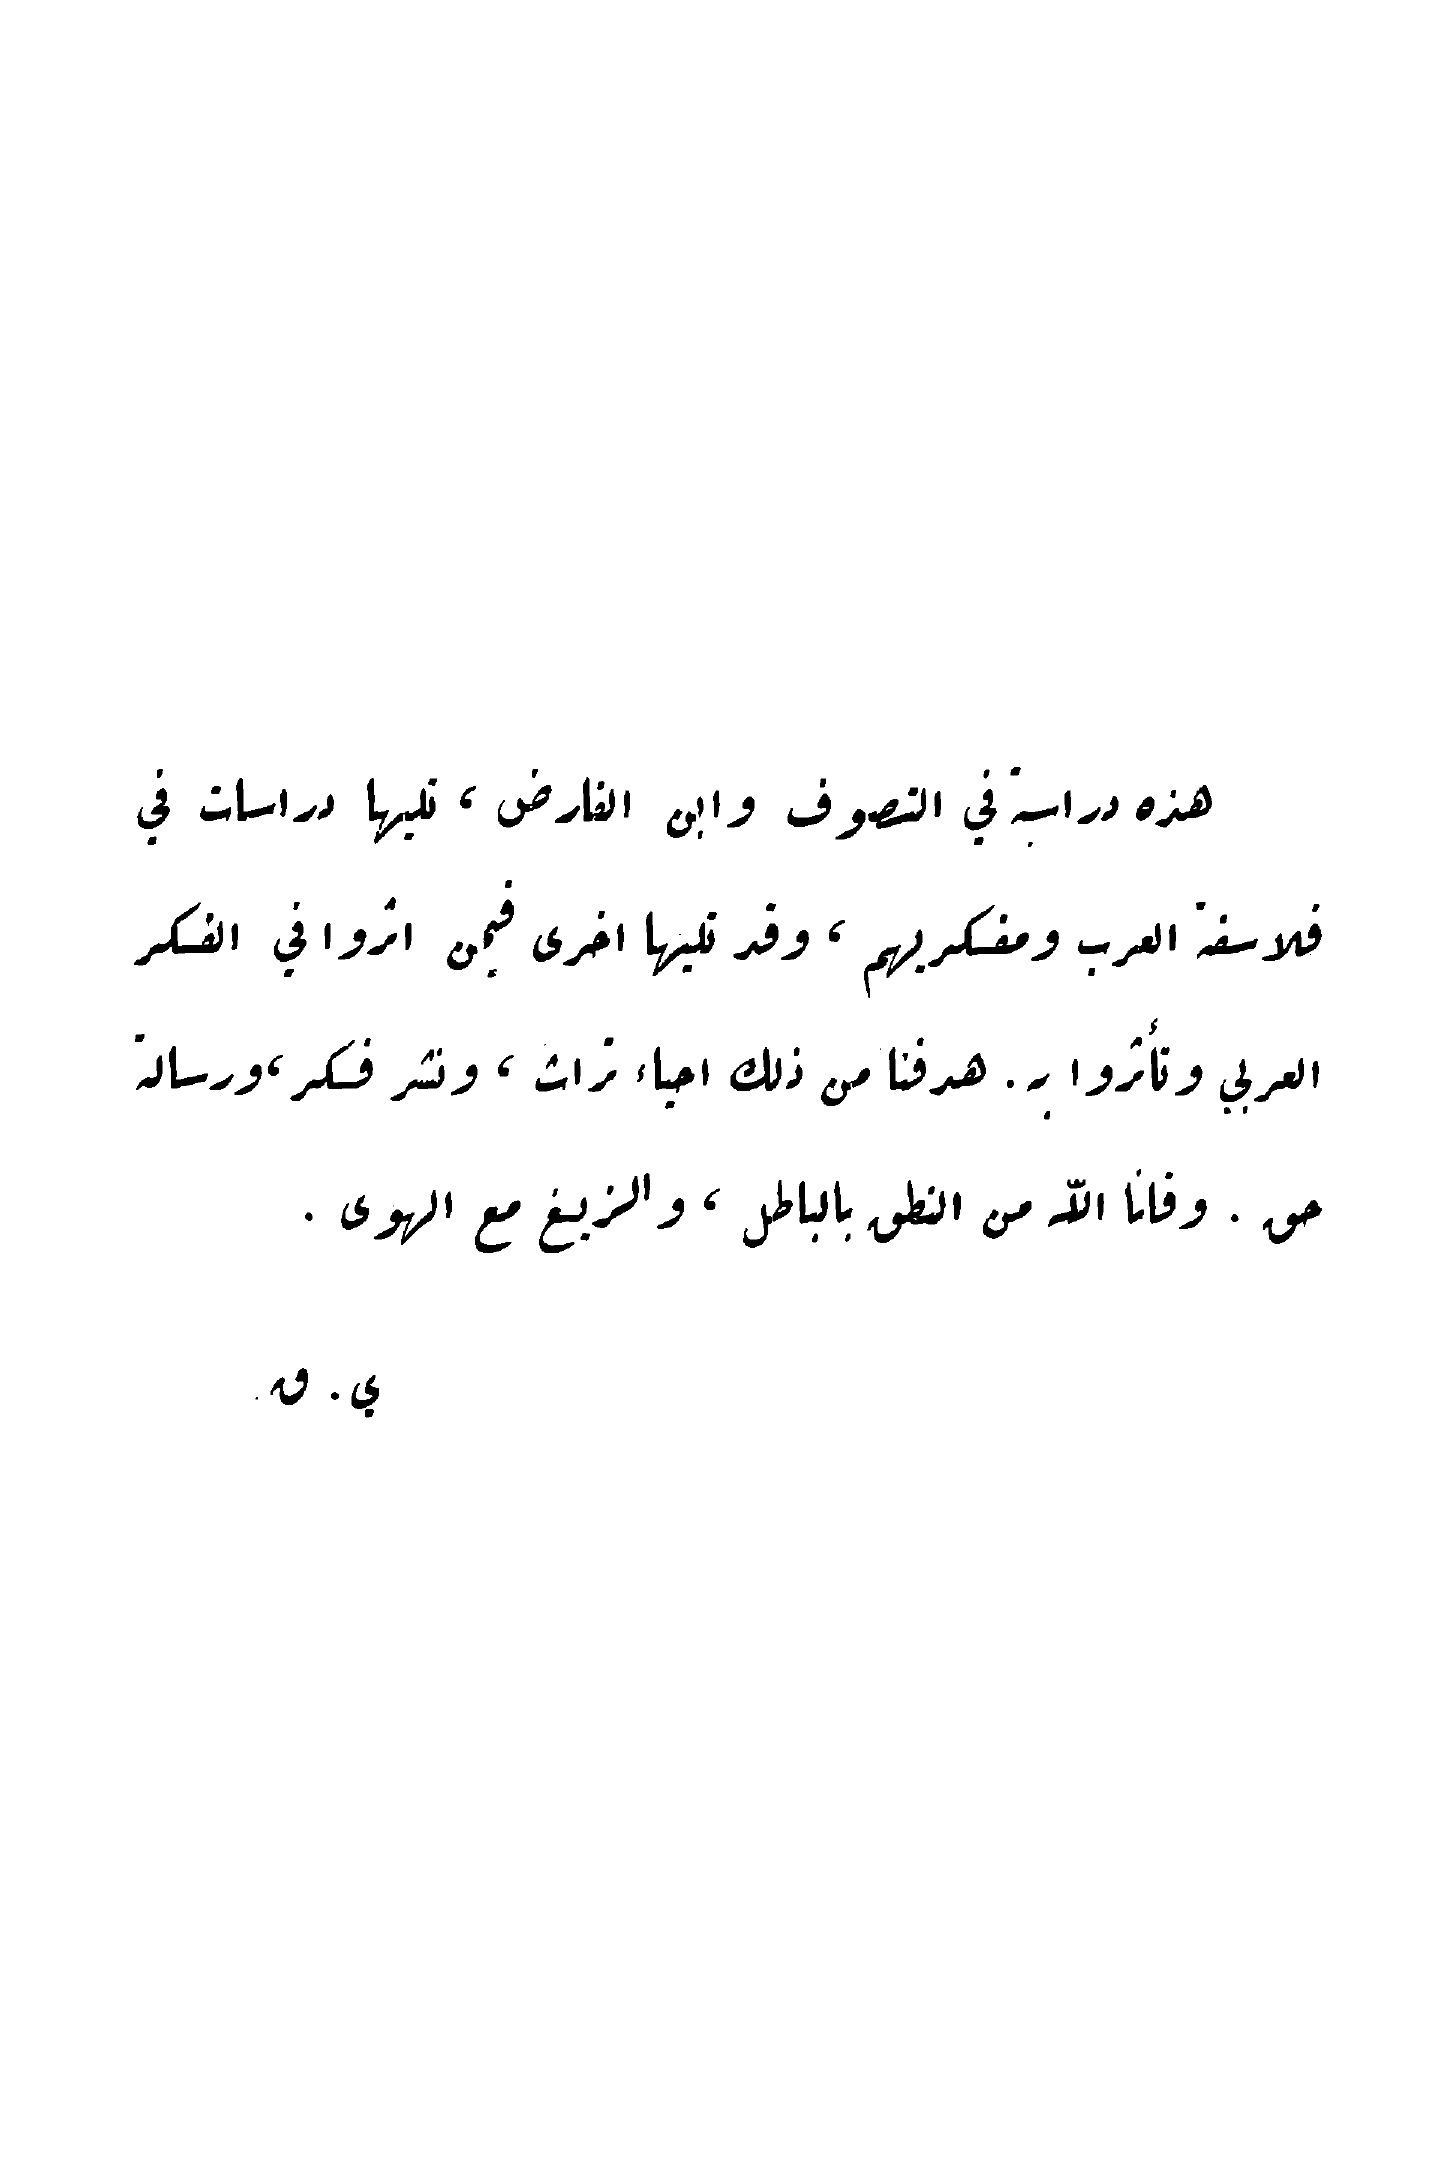 هذه دراسة في التصوف وابن الفارض ، تليها دراسات في
فلاسفة العرب ومفكريهم ، وقد تليها اخرى فيمن اثروا في الفكر
العربي وتأثروا به . هدفنا من ذلك احياء تراث ، ونشر فكر ، ورسالة
حق . وقانا الله من النطق بالباطل ، والزيغ مع الهوى .
ي . ق .